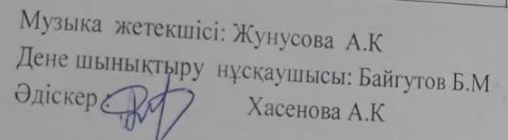 Музыка жетекшісі: Жунусова А.К
Дене шынықтыру нұсқаушысы: Байгутов Б.М
Әдіскер: Хасенова А.К